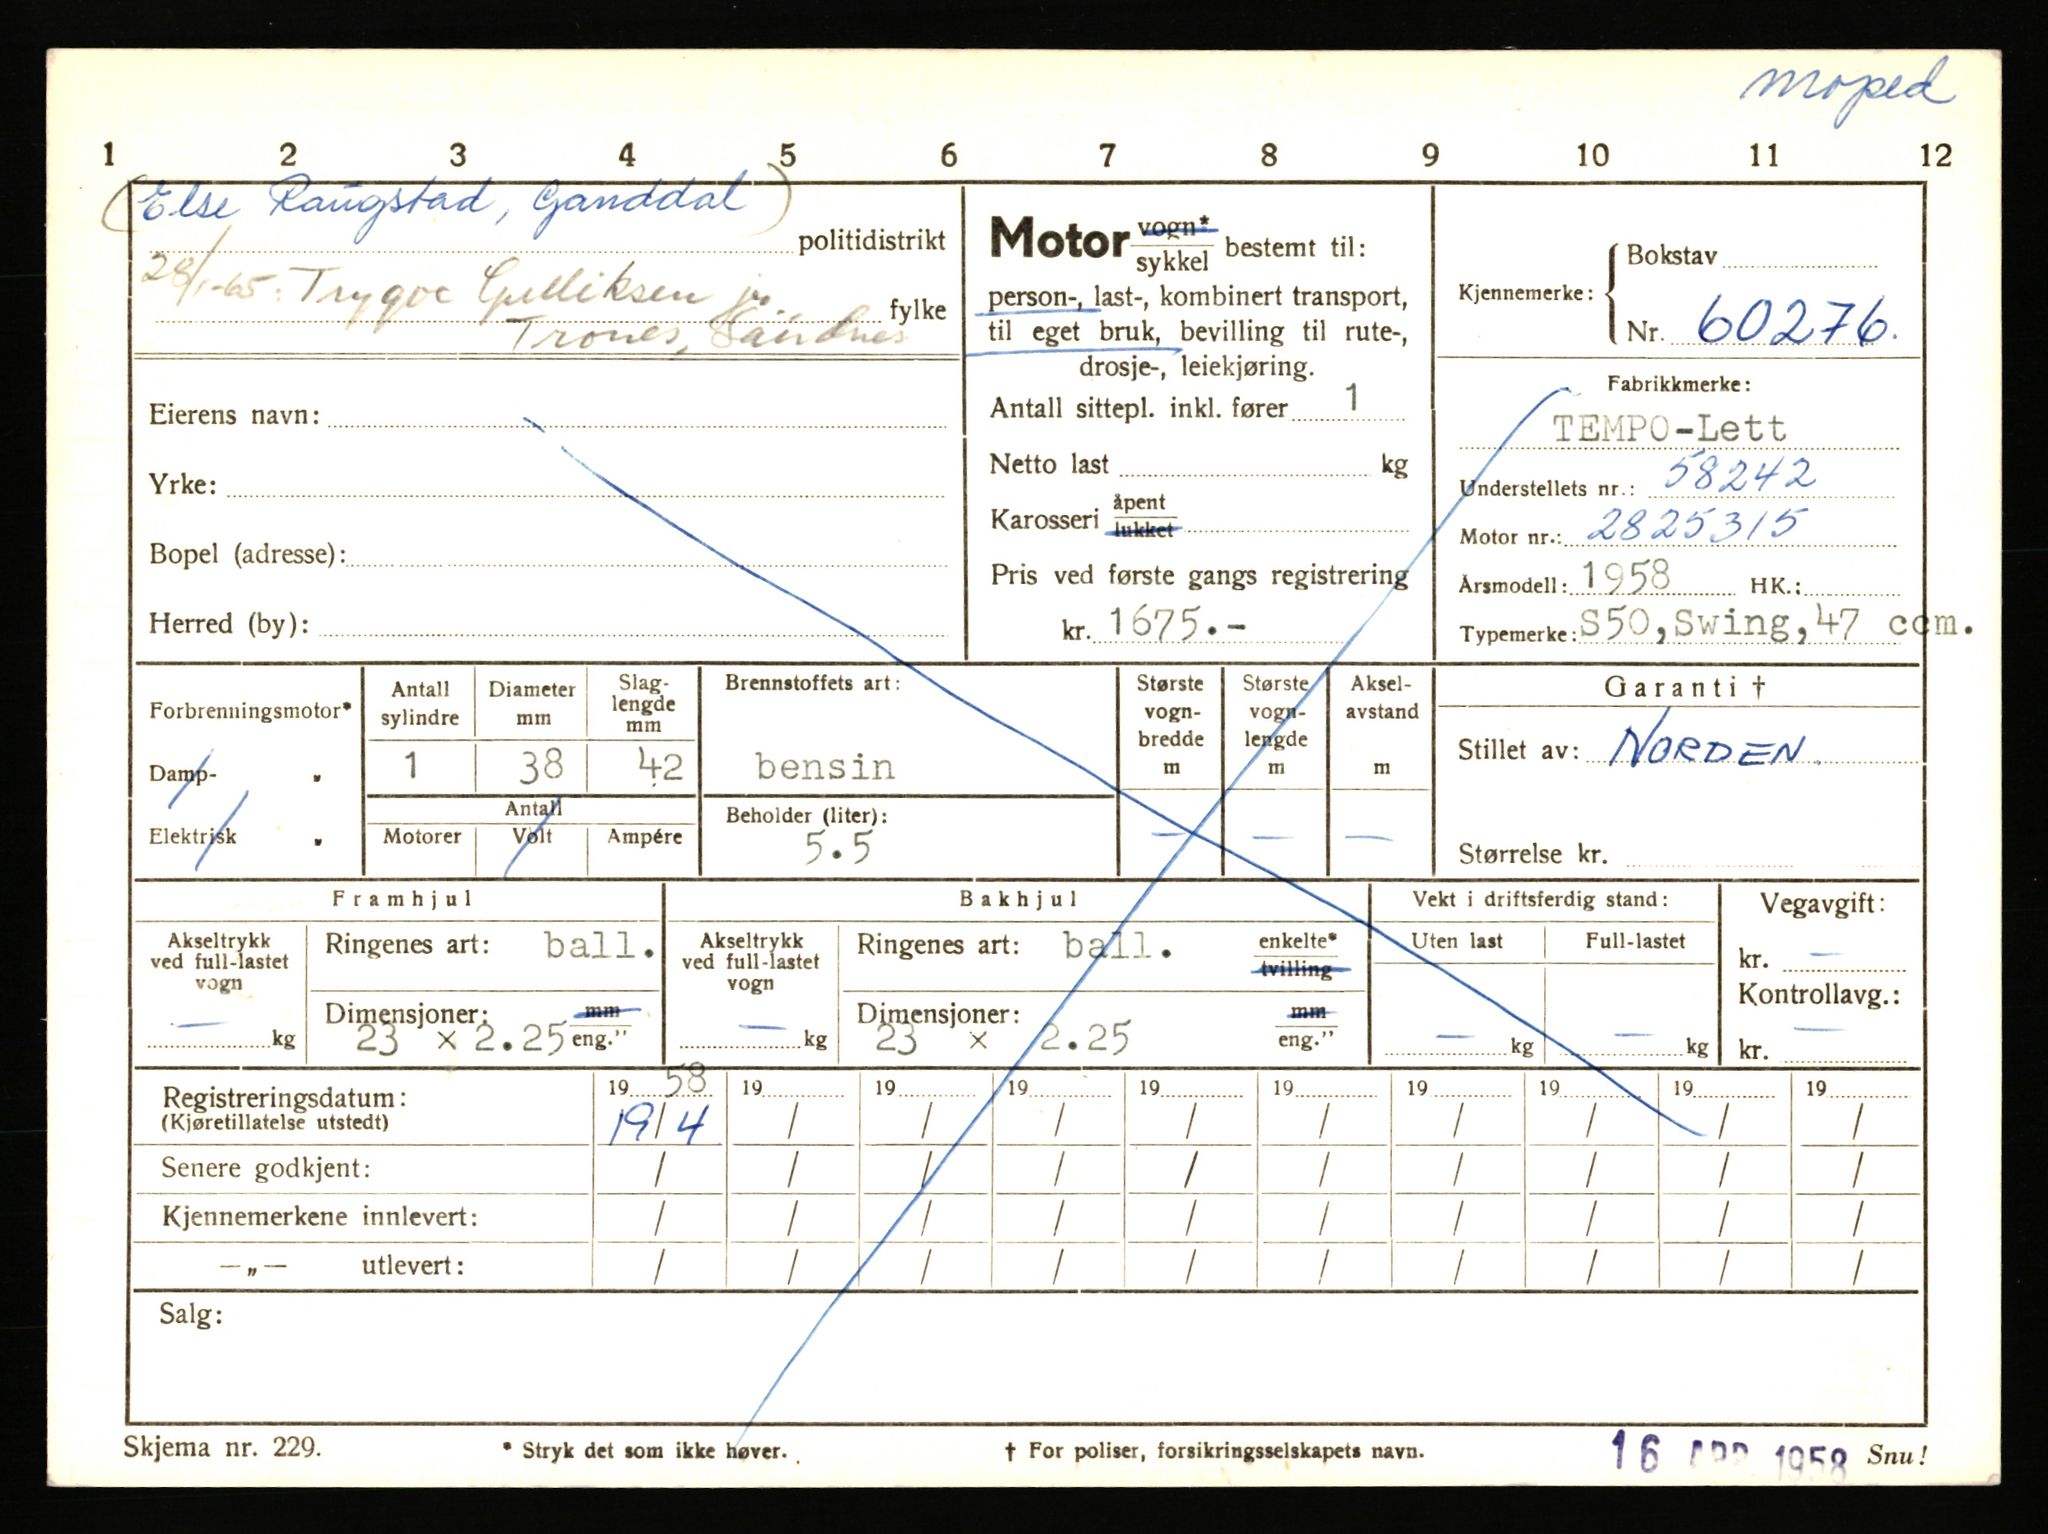 moped
1 2 3 4 5 6 7 8 9 10 11 12
(Else Raugstad, Ganddal)
politidistrikt
28/1-65. Trygve Gulliksen jr.
fylke
Trones, Sandnes
Eierens navn:
Yrke:
Bopel (adresse):
Herred (by):
Motor vogn* / sykkel bestemt til:
person-, last-, kombinert transport,
til eget bruk, bevilling til rute-,
drosje-, leiekjøring.
Antall sittepl. inkl. fører 1
Netto last kg
Karosseri åpent / lukket
Pris ved første gangs registrering
kr. 1675.-
Kjennemerke: Bokstav
Nr. 60276.
Fabrikkmerke:
TEMPO-Lett
Understellets nr.: 58242
Motor nr.: 2825315
Årsmodell: 1958 HK.:
Typemerke: S50, Swing, 47 ccm.
Forbrenningsmotor*
Damp- „
Elektrisk „
Antall sylindre
Diameter mm
Slag-lengde mm
1 38 42
Antall
Motorer Volt Ampére
Brennstoffets art:
bensin
Beholder (liter):
5.5
Største vogn-bredde m
Største vogn-lengde m
Aksel-avstand m
— — —
Garanti †
Stillet av: NORDEN.
Størrelse kr.
Framhjul
Akseltrykk ved full-lastet vogn
— kg
Ringenes art: ball.
Dimensjoner: mm
23 × 2.25 eng."
Bakhjul
Akseltrykk ved full-lastet vogn
— kg
Ringenes art: ball. enkelte* / tvilling
Dimensjoner: mm
23 × 2.25 eng."
Vekt i driftsferdig stand:
Uten last Full-lastet
— kg — kg
Vegavgift:
kr. —
Kontrollavg.:
kr. —
Registreringsdatum: 1958 19 19 19 19 19 19 19 19 19
(Kjøretillatelse utstedt) 19/4 / / / / / / / / /
Senere godkjent: / / / / / / / / / /
Kjennemerkene innlevert: / / / / / / / / / /
—„— utlevert: / / / / / / / / / /
Salg:
Skjema nr. 229.
* Stryk det som ikke høver.
† For poliser, forsikringsselskapets navn.
16 APR 1958
Snu!